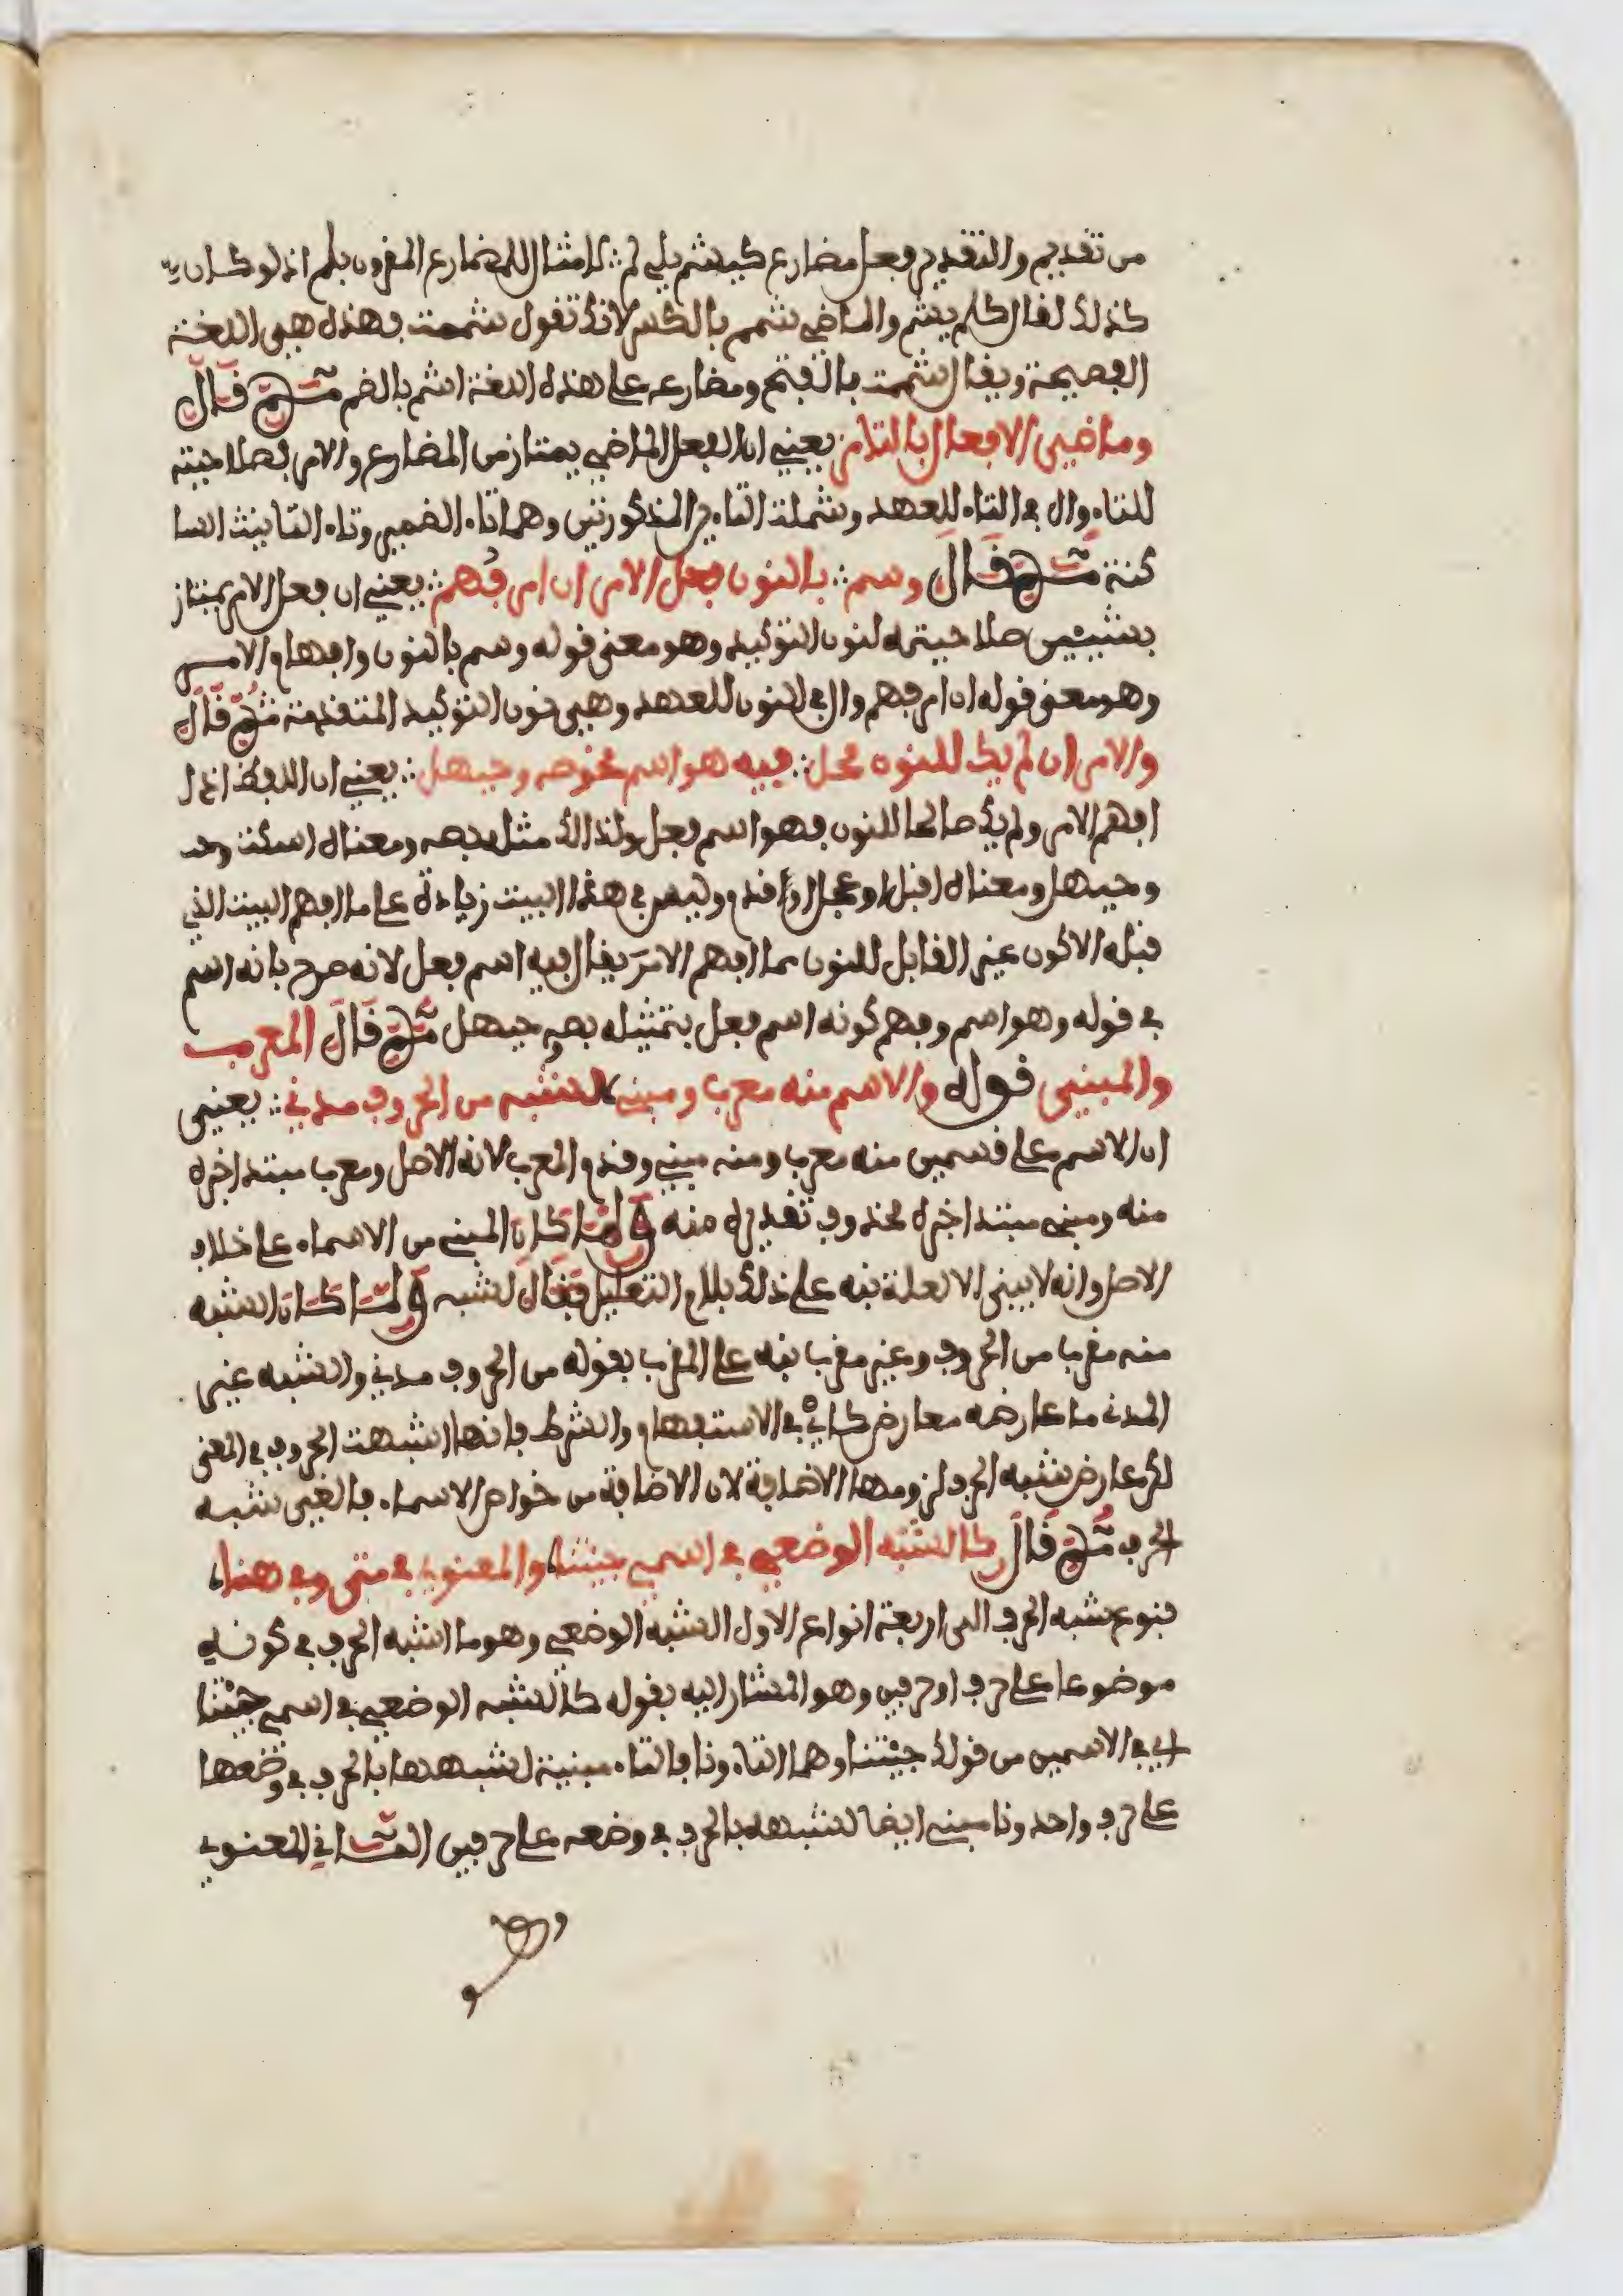 من تقديم والتقدير فعل مضارع كيشم يلي لم ∴ لا مثال للمضارع المقرون بلم اذ لو كان
كذلك لقال كلم يشم والماضي شمم بالكسر لانك تقول شممت فهذه هي اللغة
الفصيحة ويقال شممت بالفتح ومضارعه على هذه اللغة اشم بالضم ثم قال
وماضي الافعال بالتا مز يعني ان الفعل الماضي يمتاز من المضارع والامر بصلاحيته
للتاء وال في التاء للعهد وشملت التاءين المذكورتين وهما تاء الضمير وتاء التانيث السا
كنة ثم قال وسم ∴ بالنون فعل الامر ان امر فهم ∴ يعني ان فعل الامر يمتاز
بشيئين صلاحيته لنون التوكيد وهو معنى قوله وسم بالنون وافهام الامر
وهو معنى قوله ان امر فهم وال في النون للعهد وهي نون التوكيد المتقدمة ثم قال
والامر ان لم يك للنون محل ∴ فيه هو اسم نحو صه وحيهل ∴ يعني ان اللفظ اذا
افهم الامر ولم يك صالحا للنون فهو اسم فعل ولذلك مثل بصه ومعناه اسكت
وحيهل ومعناه اقبل او عجل او اقدم وليس في هذا البيت زيادة على ما افهم البيت الذي
قبله الا كون غير القابل للنون مما افهم الامر يقال فيه اسم فعل لانه صرح بانه اسم
في قوله وهو اسم وفهم كونه اسم فعل بتمثيله بصه وحيهل ثم قال المعرب
والمبني قوله والاسم منه معرب ومبني لشبه من الحروف مدني ∴ يعني
ان الاسم على قسمين منه معرب ومنه مبني وقدم المعرب لانه الاصل ومعرب مبتدا خبره
منه ومبني مبتدا خبره محذوف تقديره منه ولما كان المبني من الاسماء على خلاف
الاصل وانه لا يبنى الا لعلة نبه على ذلك بلام التعليل فقال لشبه ولما كان الشبه
منه مقرب من الحروف وغير مقرب نبه على المقرب بقوله من الحروف مدني والشبه غير
المدني ما عارضه معارض كاي في الاستفهام والشرط فانها اشبهت الحروف في المعنى
لكن عارض شبه الحرف لزومها الاضافة لان الاضافة من خواص الاسماء فالغي شبه
الحرف ثم قال كالشبه الوضعي في اسمي جئتنا والمعنوي في متى وفي هنا
فنوع شبه الحرف الى اربعة انواع الاول الشبه الوضعي وهو ما اشبه الحرف في كونه
موضوعا على حرف او حرفين وهو المشار اليه بقوله كالشبه الوضعي في اسمي جئتنا
اي في الاسمين من قولك جئتنا وهما التاء ونا فالتاء مبنية لشبهها بالحرف في وضعها
على حرف واحد ونا مبني ايضا لشبهه بالحرف في وضعه على حرفين الثاني المعنوي
وهو